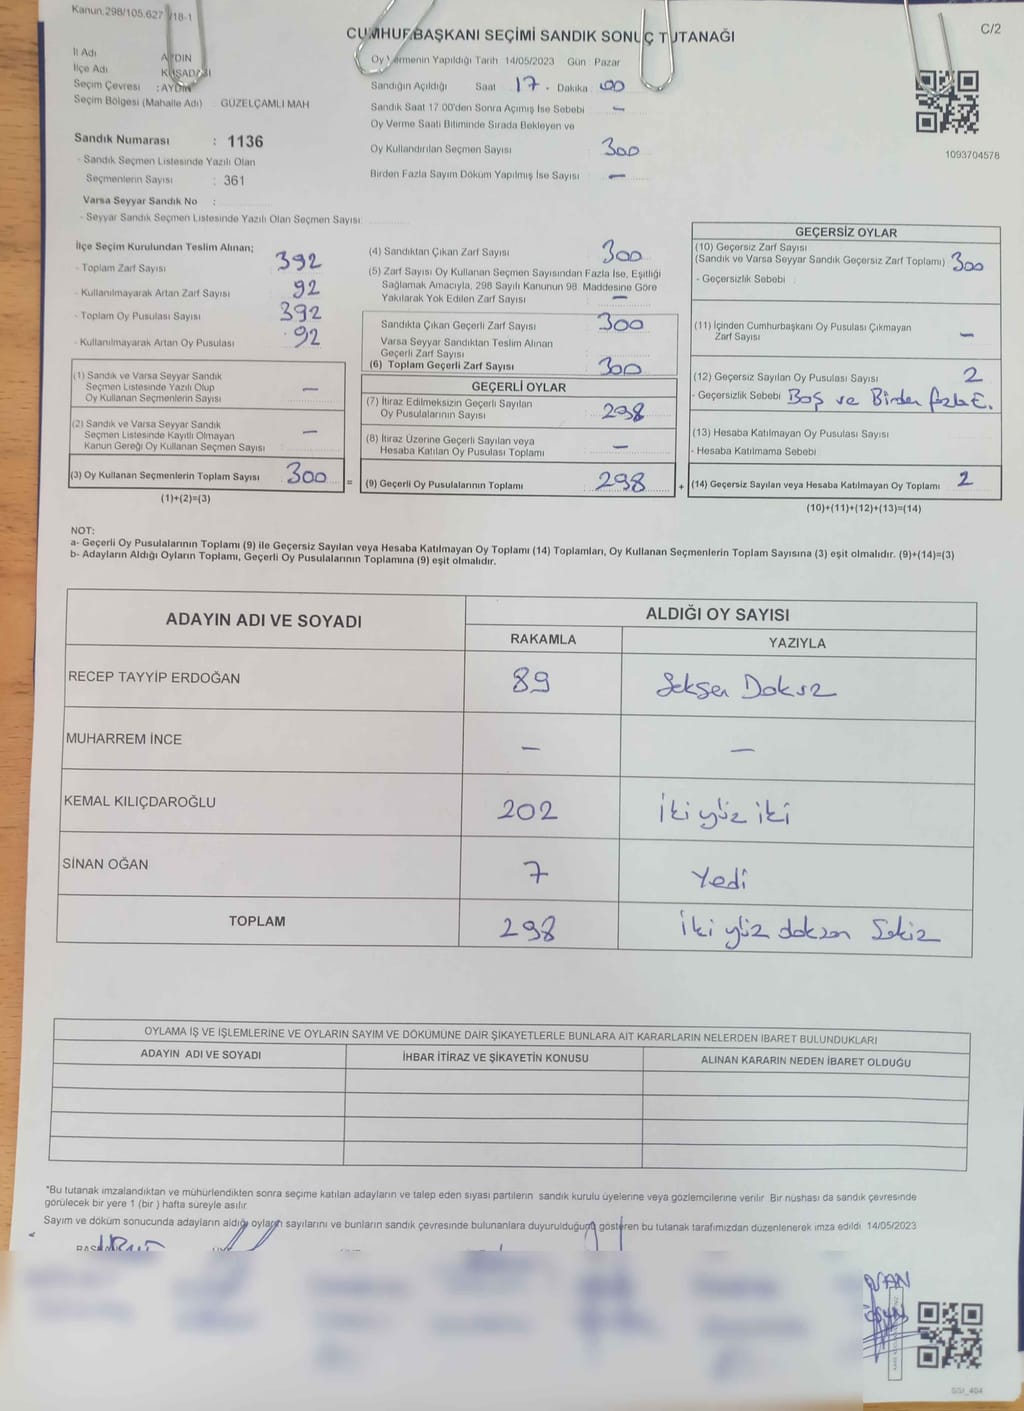 Kanun.298/105.627 /18-1
C/2
CUMHURBAŞKANI SEÇİMİ SANDIK SONUÇ TUTANAĞI
İl Adı AYDIN
İlçe Adı KUŞADASI
Seçim Çevresi : AYDIN
Seçim Bölgesi (Mahalle Adı) : GÜZELÇAMLI MAH
Oy Vermenin Yapıldığı Tarih 14/05/2023 Gün Pazar
Sandığın Açıldığı Saat 17. Dakika : 00
Sandık Saat 17 00'den Sonra Açımış İse Sebebi –
Oy Verme Saati Bitiminde Sırada Bekleyen ve
Oy Kullandırılan Seçmen Sayısı 300
Birden Fazla Sayım Döküm Yapılmış İse Sayısı –
1093704578
Sandık Numarası : 1136
- Sandık Seçmen Listesinde Yazılı Olan
Seçmenlerin Sayısı : 361
Varsa Seyyar Sandık No :
- Seyyar Sandık Seçmen Listesinde Yazılı Olan Seçmen Sayısı
İlçe Seçim Kurulundan Teslim Alınan;
- Toplam Zarf Sayısı 392
- Kullanılmayarak Artan Zarf Sayısı 92
- Toplam Oy Pusulası Sayısı 392
- Kullanılmayarak Artan Oy Pusulası 92
(1) Sandık ve Varsa Seyyar Sandık
Seçmen Listesinde Yazılı Olup
Oy Kullanan Seçmenlerin Sayısı –
(2) Sandık ve Varsa Seyyar Sandık
Seçmen Listesinde Kayıtlı Olmayan
Kanun Gereği Oy Kullanan Seçmen Sayısı –
(3) Oy Kullanan Seçmenlerin Toplam Sayısı 300
(1)+(2)=(3)
=
(4) Sandıktan Çıkan Zarf Sayısı 300
(5) Zarf Sayısı Oy Kullanan Seçmen Sayısından Fazla İse, Eşitliği
Sağlamak Amacıyla, 298 Sayılı Kanunun 98. Maddesine Göre
Yakılarak Yok Edilen Zarf Sayısı –
Sandıkta Çıkan Geçerli Zarf Sayısı 300
Varsa Seyyar Sandıktan Teslim Alınan
Geçerli Zarf Sayısı
(6) Toplam Geçerli Zarf Sayısı 300
GEÇERLİ OYLAR
(7) İtiraz Edilmeksizin Geçerli Sayılan
Oy Pusulalarının Sayısı 298
(8) İtiraz Üzerine Geçerli Sayılan veya
Hesaba Katılan Oy Pusulası Toplamı –
(9) Geçerli Oy Pusulalarının Toplamı 298
+
GEÇERSİZ OYLAR
(10) Geçersiz Zarf Sayısı
(Sandık ve Varsa Seyyar Sandık Geçersiz Zarf Toplamı) 300
- Geçersizlik Sebebi
(11) İçinden Cumhurbaşkanı Oy Pusulası Çıkmayan
Zarf Sayısı –
(12) Geçersiz Sayılan Oy Pusulası Sayısı 2
- Geçersizlik Sebebi Boş ve Birden fazla E.
(13) Hesaba Katılmayan Oy Pusulası Sayısı
- Hesaba Katılmama Sebebi
(14) Geçersiz Sayılan veya Hesaba Katılmayan Oy Toplamı 2
(10)+(11)+(12)+(13)=(14)
NOT:
a- Geçerli Oy Pusulalarının Toplamı (9) ile Geçersiz Sayılan veya Hesaba Katılmayan Oy Toplamı (14) Toplamları, Oy Kullanan Seçmenlerin Toplam Sayısına (3) eşit olmalıdır. (9)+(14)=(3)
b- Adayların Aldığı Oyların Toplamı, Geçerli Oy Pusulalarının Toplamına (9) eşit olmalıdır.
ADAYIN ADI VE SOYADI
ALDIĞI OY SAYISI
RAKAMLA YAZIYLA
RECEP TAYYİP ERDOĞAN 89 Seksen Dokuz
MUHARREM İNCE – –
KEMAL KILIÇDAROĞLU 202 İki yüz iki
SİNAN OĞAN 7 Yedi
TOPLAM 298 İki yüz doksan Sekiz
OYLAMA İŞ VE İŞLEMLERİNE VE OYLARIN SAYIM VE DÖKÜMÜNE DAİR ŞİKAYETLERLE BUNLARA AİT KARARLARIN NELERDEN İBARET BULUNDUKLARI
ADAYIN ADI VE SOYADI İHBAR İTİRAZ VE ŞİKAYETİN KONUSU ALINAN KARARIN NEDEN İBARET OLDUĞU
*Bu tutanak imzalandıktan ve mühürlendikten sonra seçime katılan adayların ve talep eden siyasi partilerin sandık kurulu üyelerine veya gözlemcilerine verilir. Bir nüshası da sandık çevresinde
görülecek bir yere 1 (bir ) hafta süreyle asılır
Sayım ve döküm sonucunda adayların aldığı oyların sayılarını ve bunların sandık çevresinde bulunanlara duyurulduğunu gösteren bu tutanak tarafımızdan düzenlenerek imza edildi. 14/05/2023